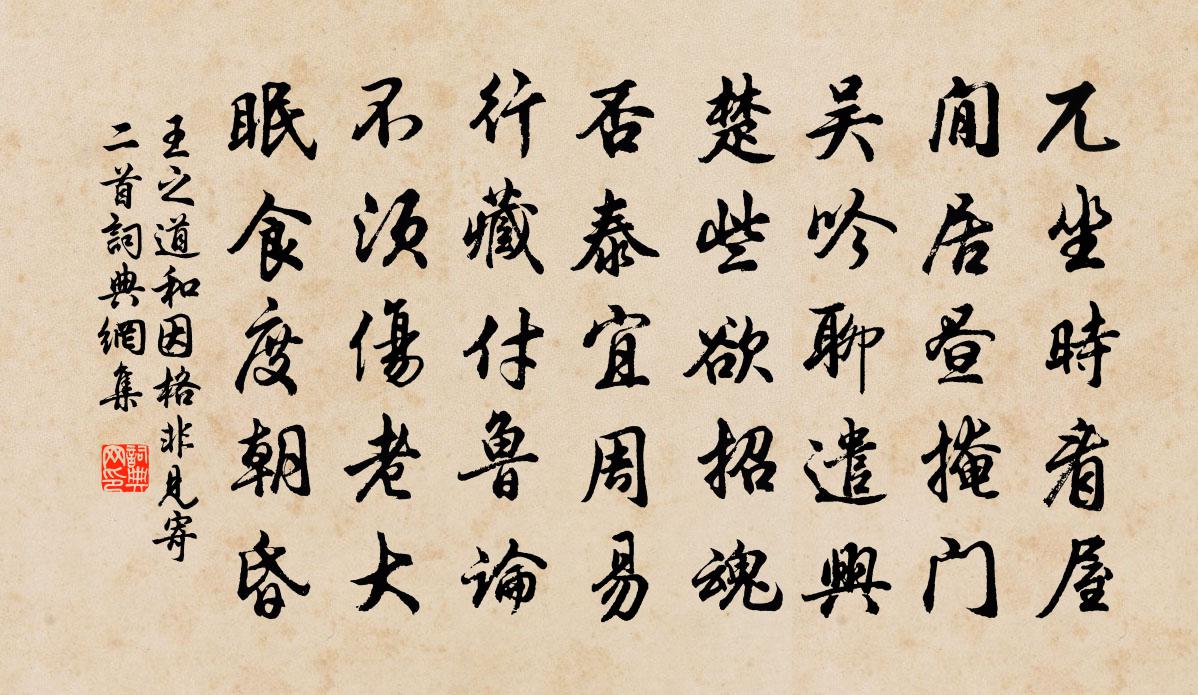 兀坐時看屋
閒居昼掩门
吴吟聊遣興
楚些欲招魂
否泰宜周易
行藏付魯論
不須傷老大
眠食度朝昏
王之道和因格非見寄
二首詞典網集
詞典
网印